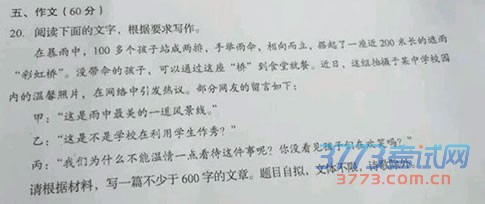 五、作文（60分）
20. 阅读下面的文字，根据要求写作。
在暴雨中，100多个孩子站成两排，手举雨伞，相向而立，搭起了一座近200米长的遮雨
“彩虹桥”。没带伞的孩子，可以通过这座“桥”到食堂就餐。近日，这组拍摄于某中学校园
内的温馨照片，在网络中引发热议。部分网友的留言如下：
甲：“这是雨中最美的一道风景线。”
乙：“这是不是学校在利用学生作秀？”
丙：“我们为什么不能温情一点看待这件事呢？你没看见孩子们在欢笑吗？”
请根据材料，写一篇不少于600字的文章。题目自拟，文体不限，诗歌除外。
3773考试网
3773.com.cn